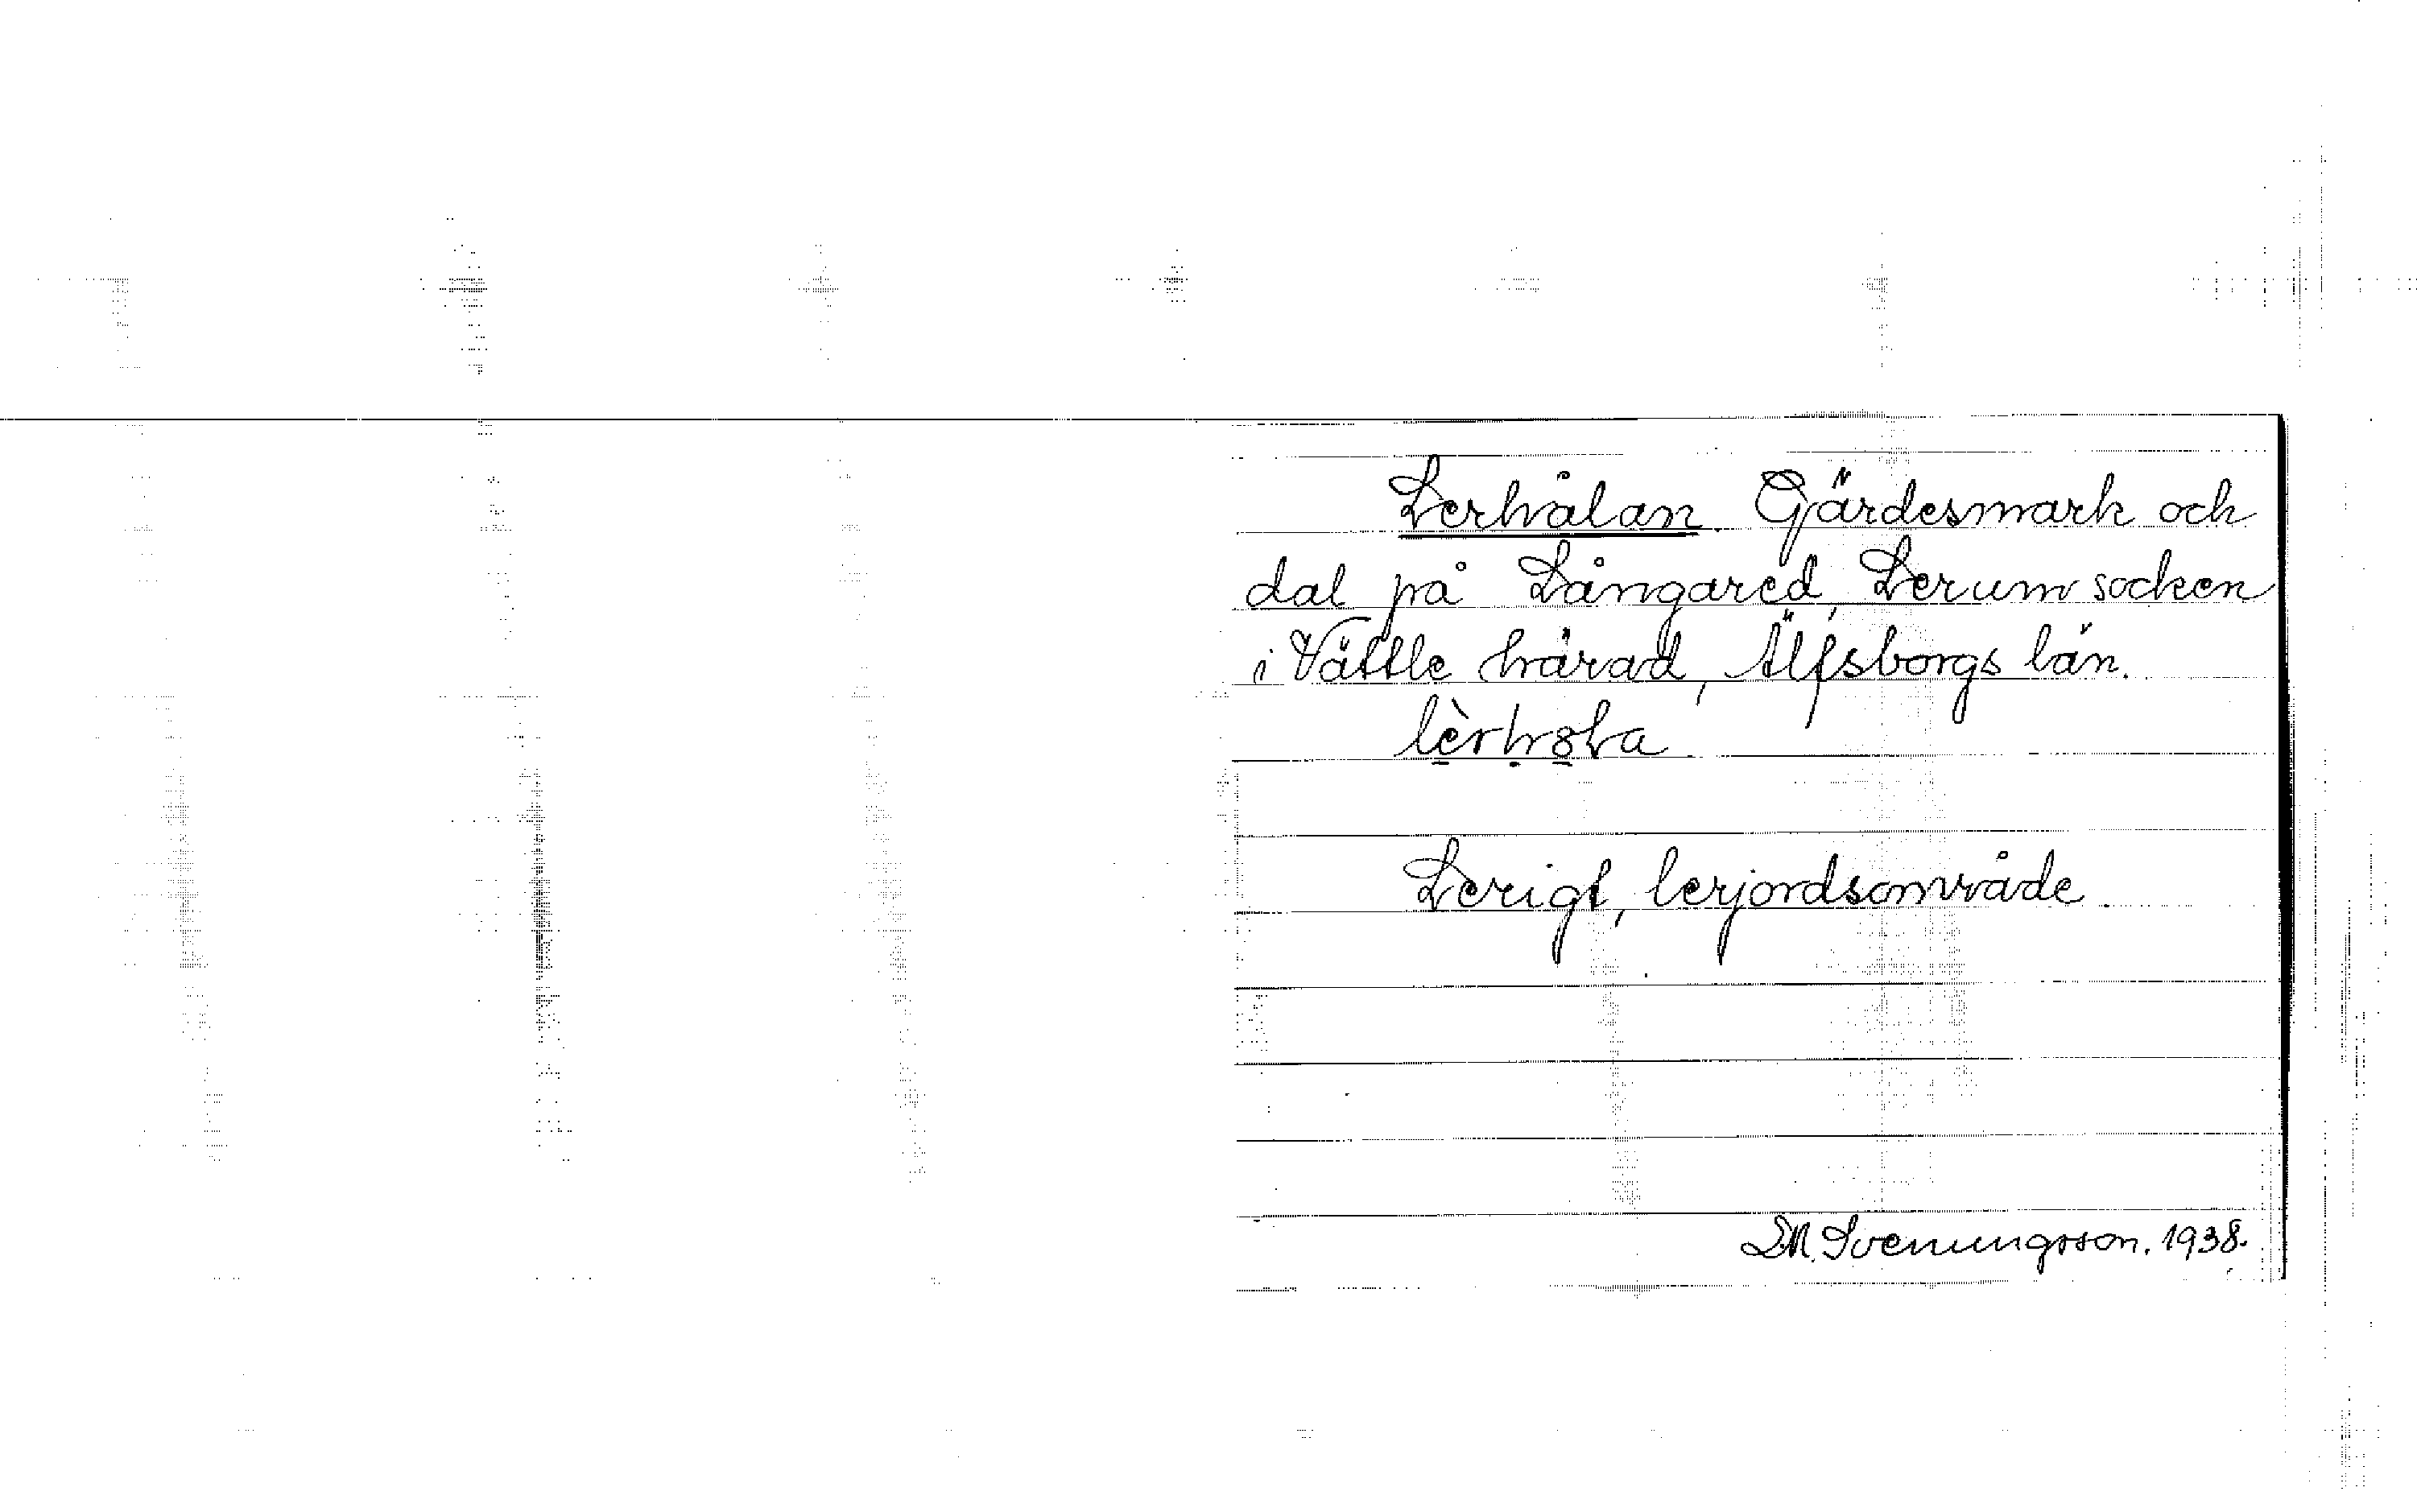 Lerhålan. Gärdesmark och
dal på Långared, Lerum socken
i Vättle härad, Älfsborgs län.
Lerigt, lerjordsområde
Svenungsson. 1938.